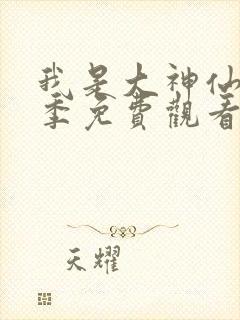 我是大神仙
季免費觀看
天耀